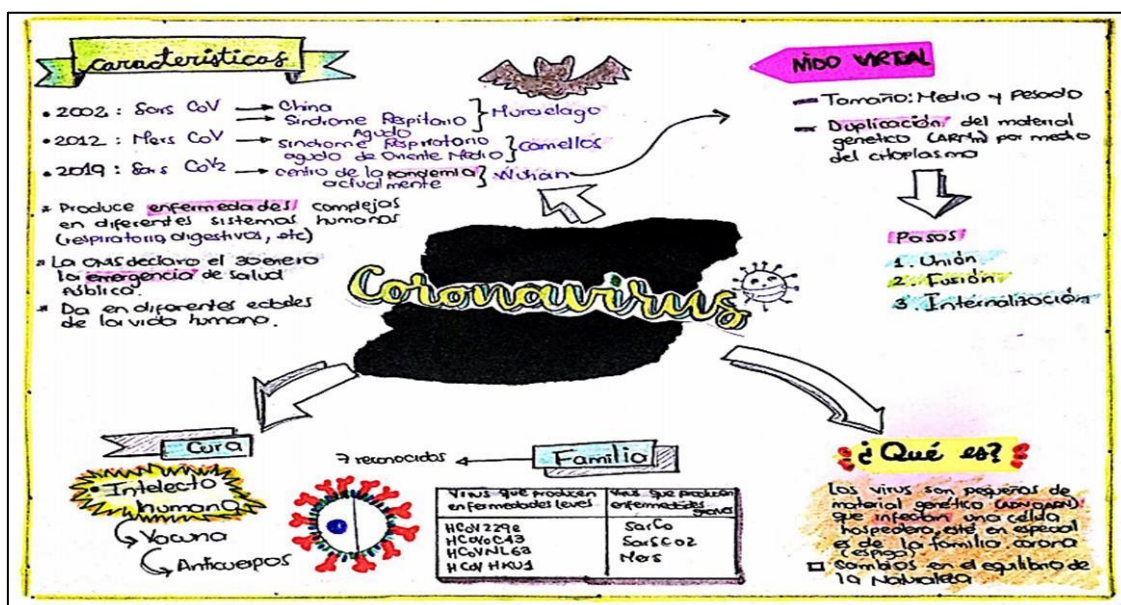 Características
• 2002: Sars CoV → China
→ Sindrome Respitario Agudo } Murcielago
• 2012: Mers CoV → Sindrome Respiratorio
agudo de Oriente Medio } camellos
• 2019: Sars CoV2 → centro de la pandemia
actualmente } Wuhan
* Produce enfermedades complejas
en diferentes sistemas humanos
(respiratorio, digestivos, etc)
* La OMS declaro el 30 enero
la emergencia de salud
Pública.
* Da en diferentes edades
de la vida humana.
NIDO VIRTUAL
Tamaño: Medio y Pesado
Duplicación del material
genetico (ARNm) por medio
del citoplasma
Pasos
1. Unión
2. Fusión
3. Internalización
Coronavirus
Cura
• Intelecto
humano
Vacuna
Anticuerpos
7 reconocidos ← Familia
Virus que producen
enfermedades leves
HCoV229e
HCoVoC43
HCoVNL63
HCoV HKU1
Virus que producen
enfermedades graves
SarCo
SarsCo2
Mers
¿Qué es?
Los virus son pequeñas de
material genético (ADN o ARN)
que infectan una célula
hospedera, este en especial
es de la familia corona
(espiga)
Cambios en el equilibrio de
la Naturaleza